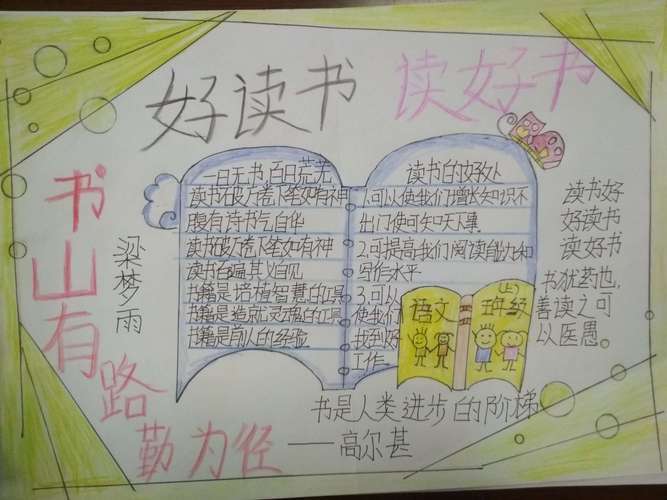 好读书 读好书
书山有路
勤为径
梁梦雨
一日无书,百日荒芜
读书破万卷下笔如有神
腹有诗书气自华
读书破万卷下笔如有神
读书百遍其义自见
书籍是培植智慧的工具
书籍是造就灵魂的工具
书籍是前人的经验
读书的好处
1.可以使我们增长知识不
出门便可知天下事
2.可提高我们阅读能力和
写作水平
3.可以
使我们
找到好
工作
语文
(上)
班年级
读书好
好读书
读好书
书犹药也,
善读之可
以医愚。
书是人类进步的阶梯
——高尔基